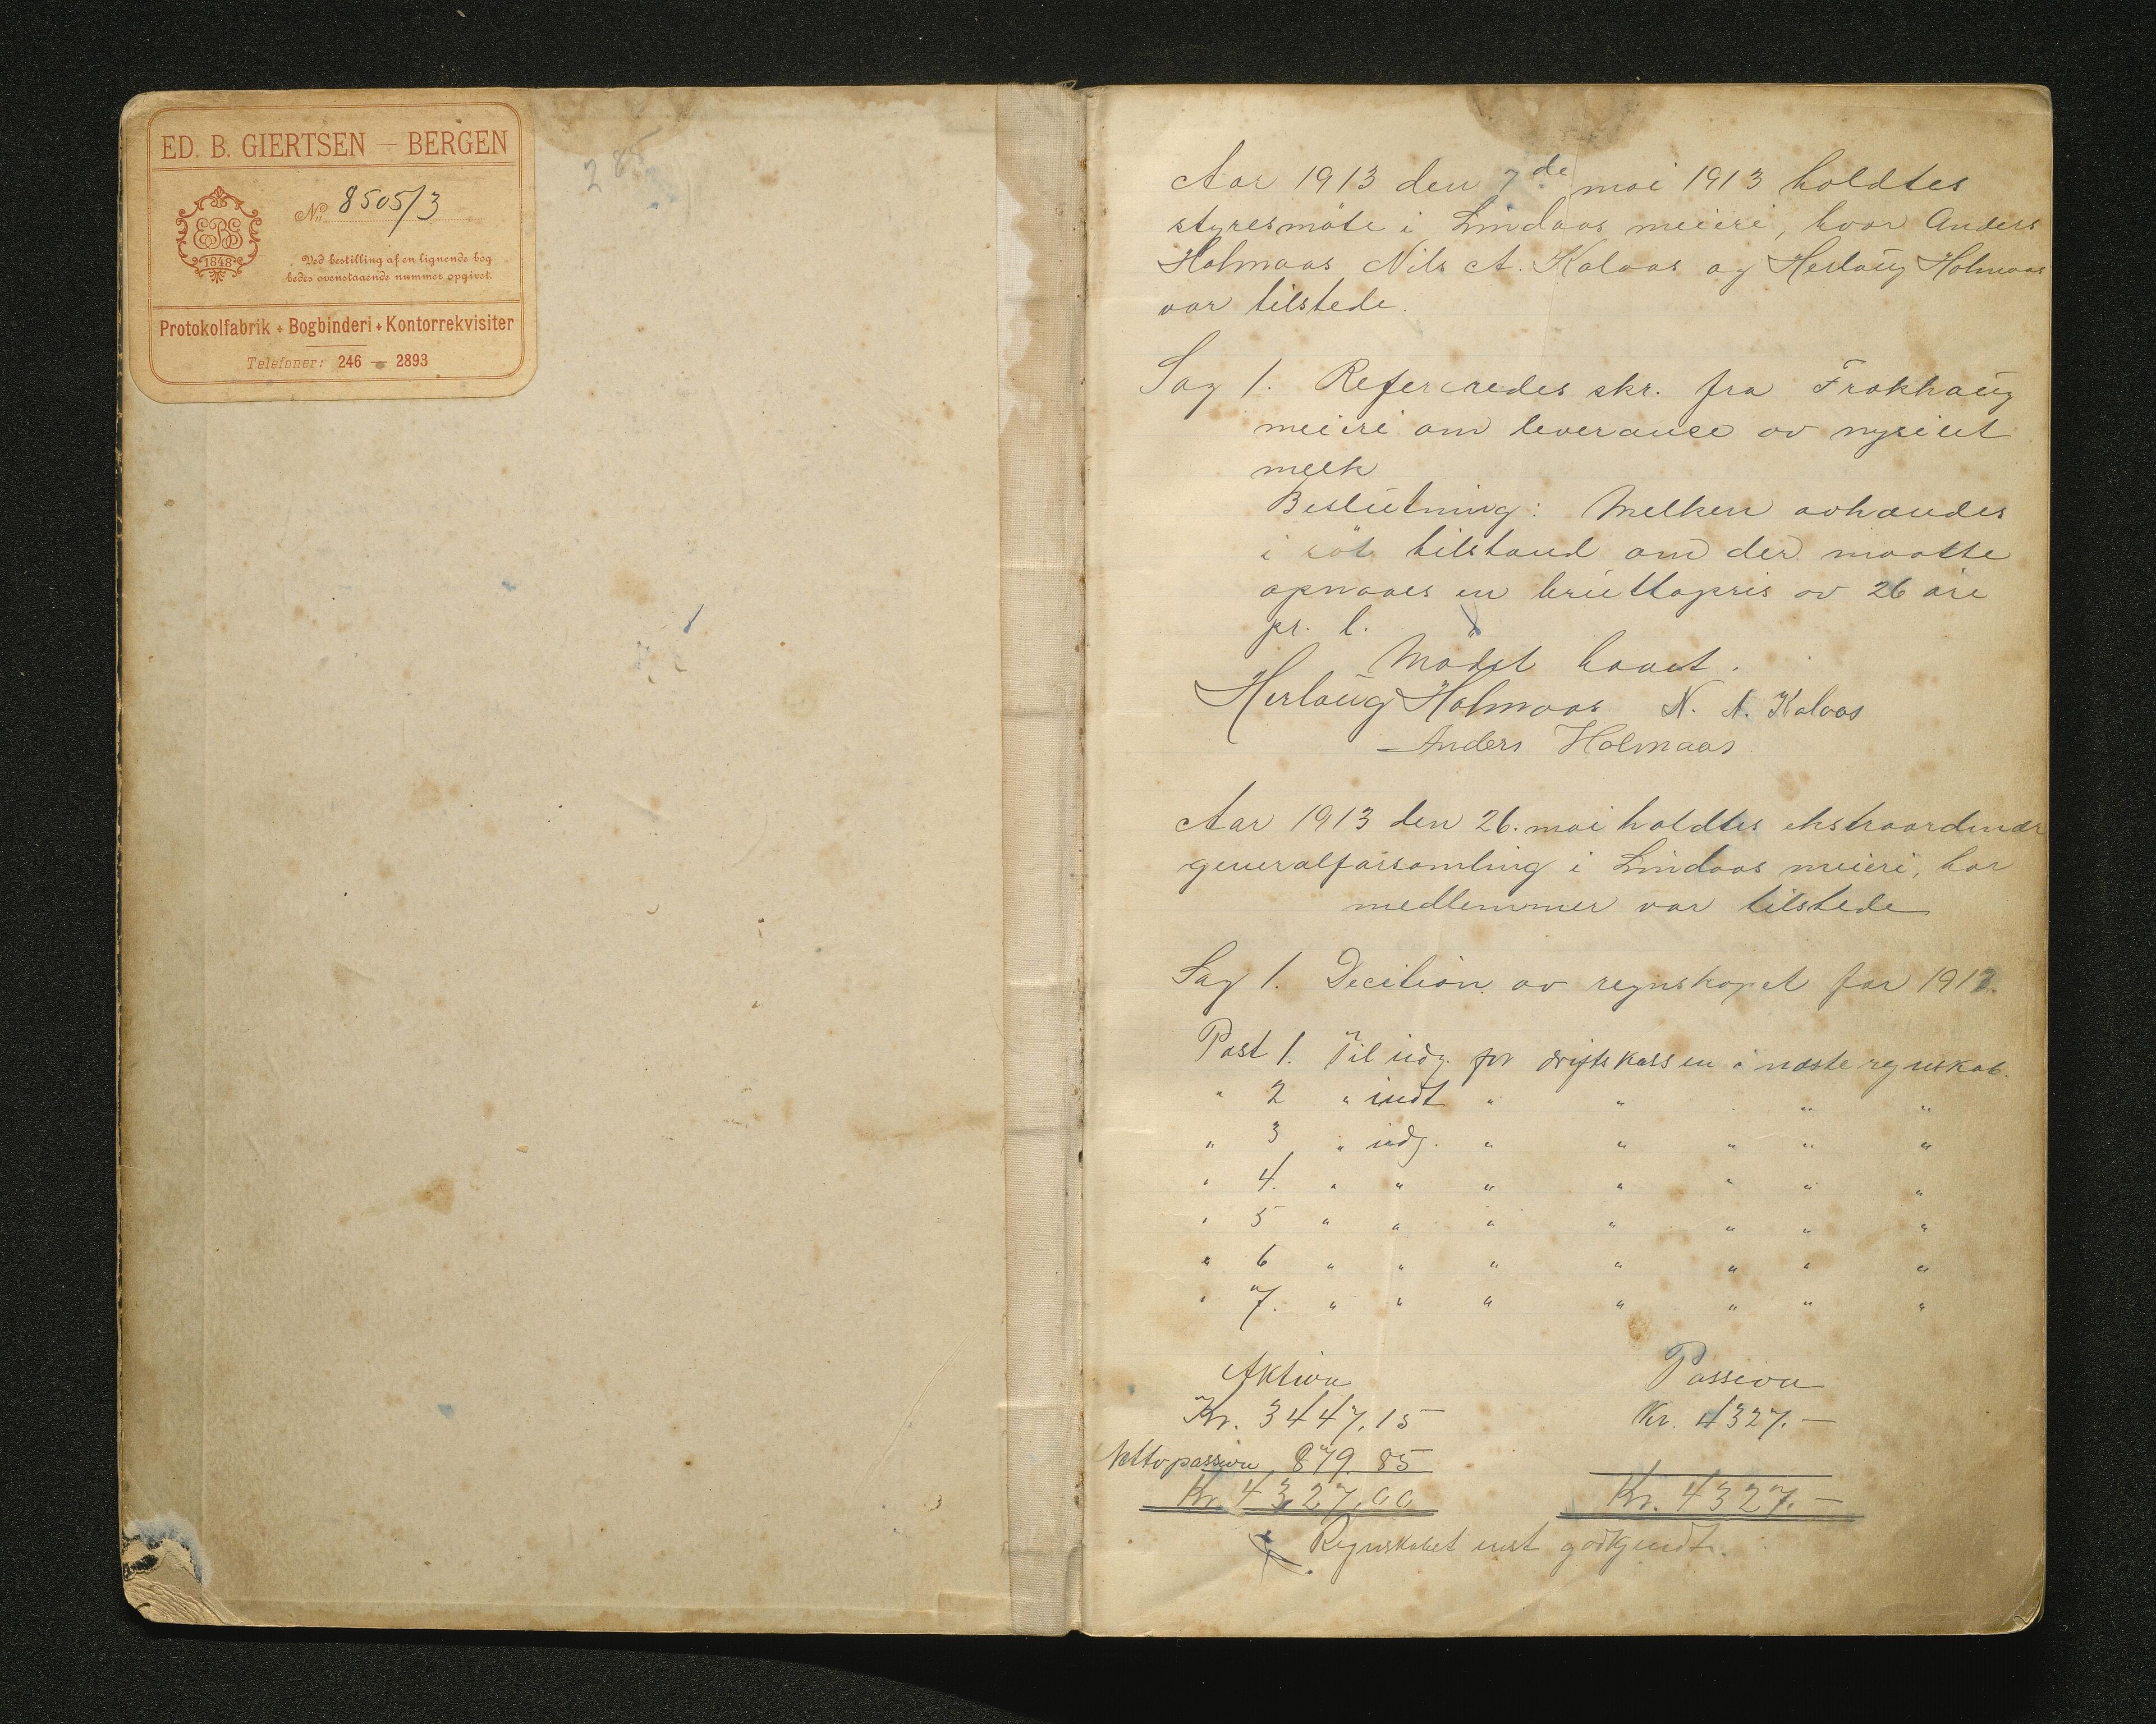 ED. B. GIERTSEN — BERGEN
No. 8505/3
EBG
1848
Ved bestilling af en lignende bog
bedes ovenstaaende nummer opgivet.
Protokolfabrik Bogbinderi Kontorrekvisiter
Telefoner: 246 — 2893
285
Aar 1913 den 7de mai 1913 holdtes
styresmöte i Lindaas meieri, hvor Anders
Holmaas Nils A. Kolaas og Herlaug Holmaas
var tilstede.
Sag 1. Refereredes skr. fra Frokhaug
meieri om leveranse av nysilet
melk
Beslutning: Melken avhændes
i söt tilstand om der maatte
opnaaes en bruttopris av 26 öre
pr. l.
Mödet hævet.
Herlaug Holmaas N. A. Kolaas
Anders Holmaas
Aar 1913 den 26. mai holdtes ekstraordinær
generalforsamling i Lindaas meieri, hor
medlemmer var tilstede
Sag 1. Decition av regnskapet for 1912.
Post 1. Til udg. for driftskassen i næste regnskab.
" 2 " indt " " " " "
" 3 " udg. " " " " "
" 4. " " " " " " "
" 5 " " " " " " "
" 6 " " " " " " "
" 7. " " " " " " "
Aktiva Passiva
Kr. 3447,15 Kr. 4327.—
Nettopassiva 879.85
Kr. 4327,00 Kr. 4327.—
Regnskabet godkjendt.